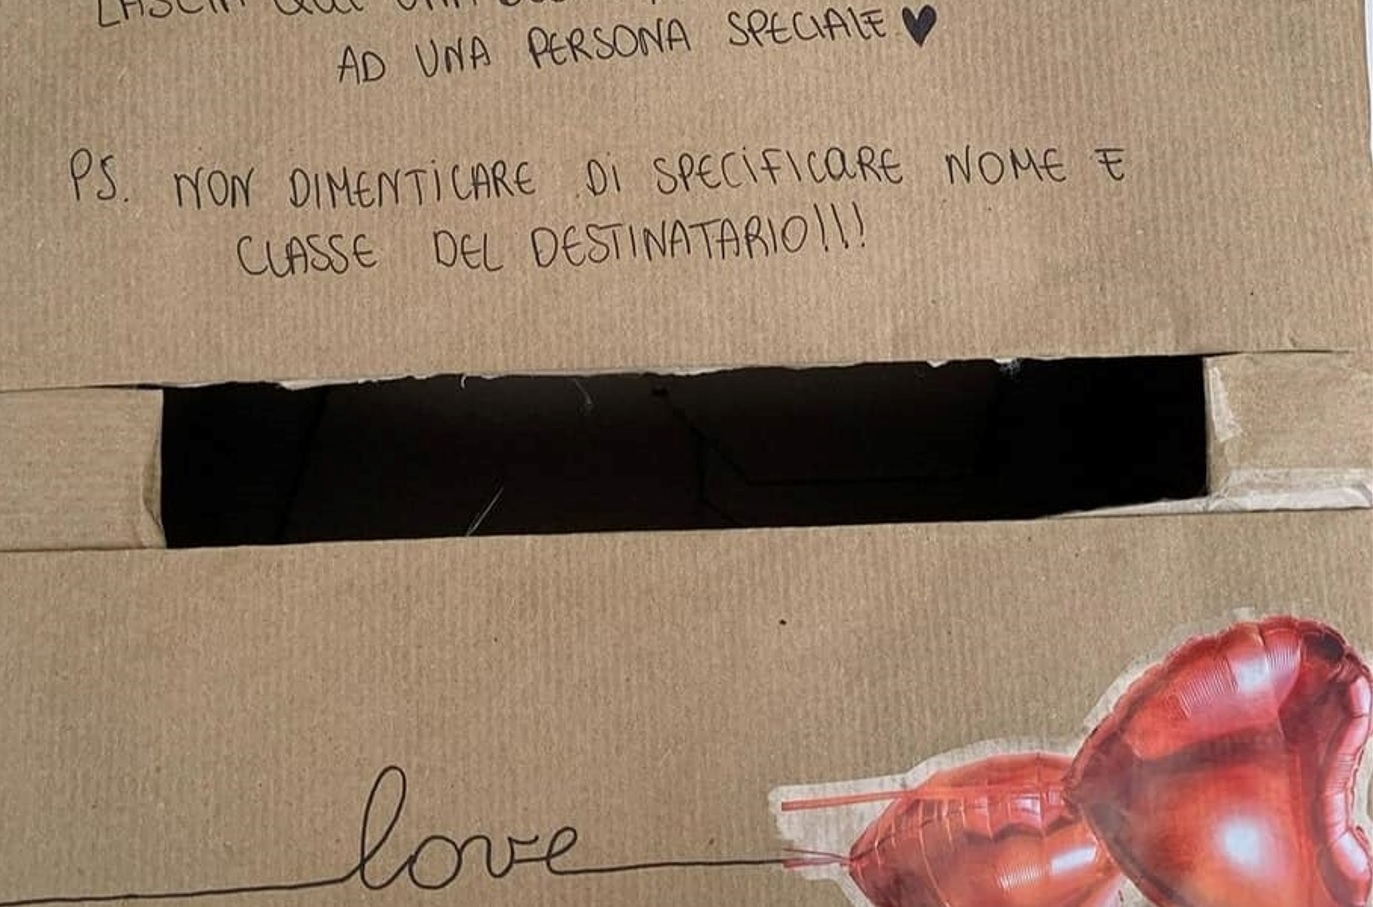 LASCIA QUI UNA
AD UNA PERSONA SPECIALE ♥
PS. NON DIMENTICARE DI SPECIFICARE NOME E
CLASSE DEL DESTINATARIO!!!
love